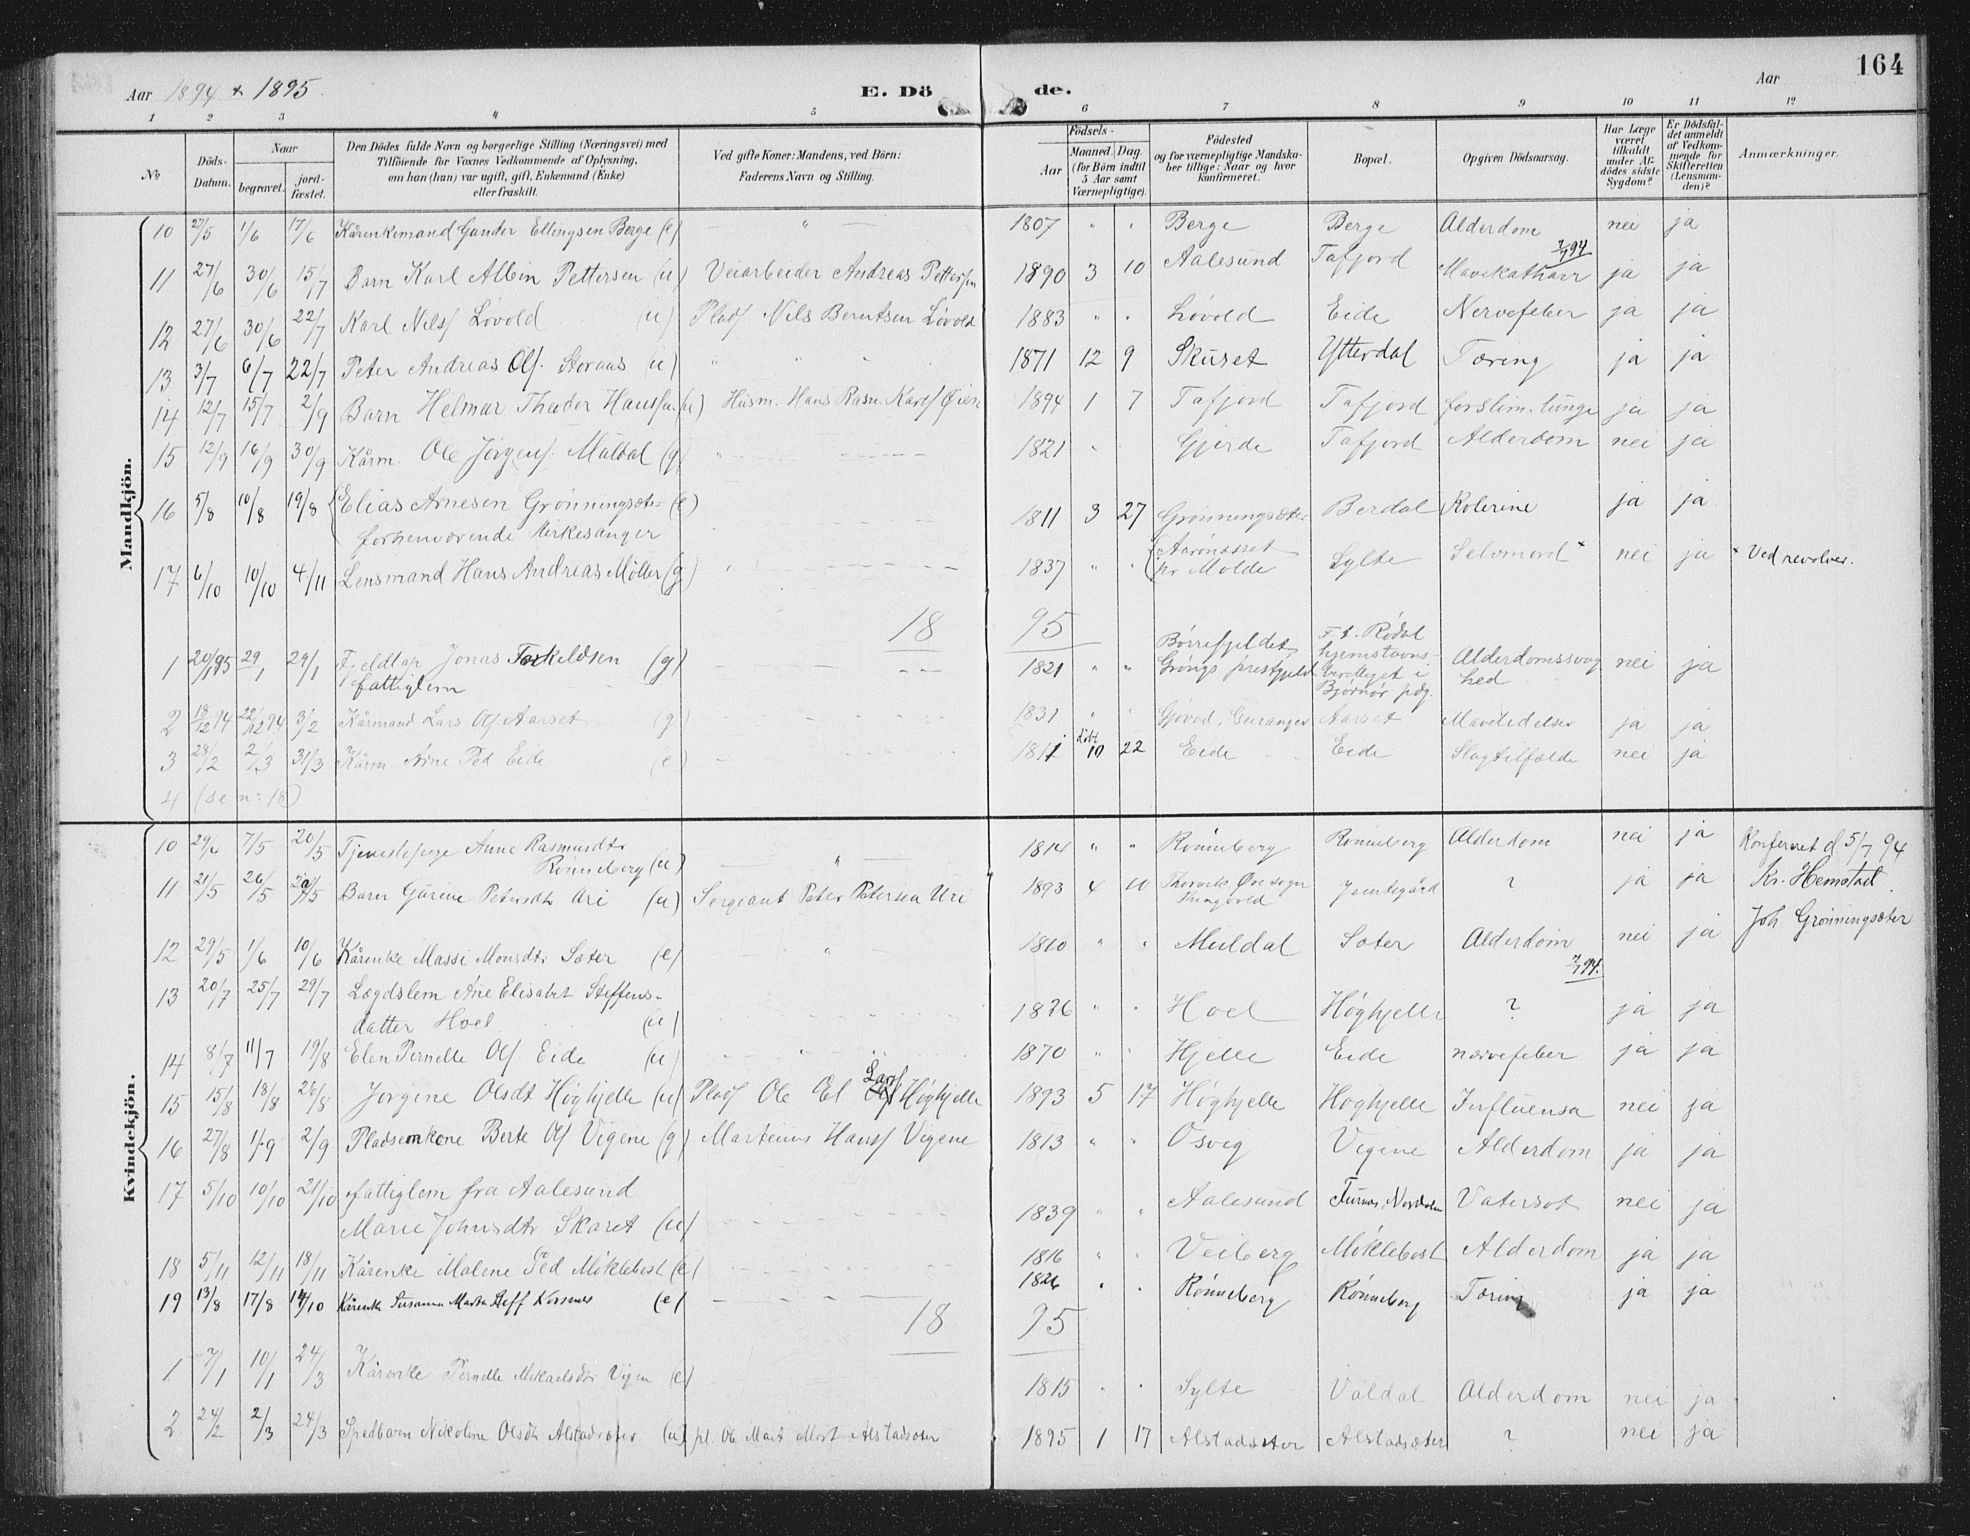 Aar 1894 & 1895.
E. Dö
de.
Aar
164
1 2 3 4 5 6 7 8 9 10 11 12
No
Döds-Datum.
Naar
begravet.
jord-fæstet.
Den Dödes fulde Navn og borgerlige Stilling (Næringsvei) med
Tilföiende for Voxnes Vedkommende af Oplysning,
om han (hun) var ugift, gift, Enkemand (Enke)
eller fraskilt.
Ved gifte Koner: Mandens, ved Börn:
Faderens Navn og Stilling.
Födsels-
Aar
Maaned. Dag.
(for Börn indtil
5 Aar samt
Værnepligtige).
Födested
og for værnepligtige Mandska-
ber tillige: Naar og hvor
konfirmeret.
Bopæl.
Opgiven Dödsaarsag.
Har Læge
været
tilkaldt
under Af-
dödes sidste
Sygdom?
Er Dödsfal-
det anmeldt
af Vedkom-
mende for
Skifteretten
(Lensman-
den)?
Anmærkninger.
Mandkjön.
10 27/5 1/6 17/6 Kårenkemand Gunder Ellingsen Berge (e) " 1807 " " Berge Berge Alderdom nei ja
11 27/6 30/6 15/7 Barn Karl Albin Pettersen (u) Veiarbeider Andreas Pettersen 1890 3 10 Aalesund Tafjord Mavekatharr ja ja
12 27/6 30/6 22/7 Karl Nilsf Løvold (u) Pladsf Nils Berntsen Løvold 1883 " " Løvold Eide Nervefeber ja ja
13 3/7 6/7 22/7 Peter Andreas Olf. Storaas (u) " " 1871 12 9 Skuset Ytterdal Tæring ja ja
14 12/7 15/7 2/9 Barn Helmar Thodor Hansen (u) Husm. Hans Rasm. Karlf Øien 1894 1 7 Tafjord Tafjord forslim. lunge ja ja
15 12/9 16/9 30/9 Kårm. Ole Jørgens. Muldal (g) " 1821 " Gjerde Tafjord Alderdom nei ja
16 5/8 10/8 19/8 Elias Arnesen Grønningsæter (e) 1811 3 27 Grønningsæter Berdal Kolerine ja ja
forhenværende Kirkesanger
17 6/10 10/10 4/11 Lensmand Hans Andreas Møller (g) " 1837 " " Aarønæsset pr Molde Sylte Selvmord + nei ja + Ved revolver.
18 95
1 20/1 95 29/1 29/1 Fjeldlap Jonas Torkildsen (g) 1821 " " Børrefjeldet Grongs prestgjeld F. t. Rødal hjemstavns- i Bjørnør pdg. Alderdomssvaghed nei ja
fattiglem
2 18/12 94 22/12 94 3/2 Kårmand Lars Olf Aarset (g) 1831 " " Geiranger Aarset Mavelidelser ja ja
3 28/2 2/3 31/3 Kårm Arne Ped Eide (e) 1811 10 22 Eide Eide Slagtilfælde nei ja
4 (se no: 18)
Kvindekjön.
10 7/5 20/5 Tjenestepige Anne Rasmusdtr Rønneberg (u) " 1814 " " Rønneberg Rønneberg Alderdom nei ja Konfereret d 5/7 94
11 21/5 26/5 Barn Gurine Petersdtr Uri (u) Sergeant Peter Petersen Uri 1893 4 10 Øre sogn Jemtegård ? ja ja Kr. Hemstad
Joh Grønningsæter
12 29/5 1/6 10/6 Kårenke Massi Monsdtr Sæter (e) " 1810 " " Muldal Sæter Alderdom nei ja
13 20/7 25/7 29/7 Lægdslem Ane Elisabet Steffens-
datter Hoel (u) 1826 " " Hoel Høghjelle ? ja ja
14 8/7 11/7 19/8 Elen Pernelle Olf. Eide (u) " 1870 " " Hjelle Eide nervefeber ja ja
15 15/8 18/8 26/8 Jørgine Olsdt Høghjelle (u) Pladsf Ole El Larsf Høghjelle 1893 5 17 Høghjelle Høghjelle Influensa nei ja
16 27/8 1/9 2/9 Pladsenkone Berte Olf Vigene (g) Martinus Hansf Vigene 1813 " " Osvig Vigene Alderdom ja ja
17 5/10 10/10 21/10 fattiglem fra Aalesund
Marie Johnsdtr Skaret (u) 1839 " " Aalesund Nordalen Vatersot nei ja
18 5/11 12/11 18/11 Kårenke Malene Ped Møklebost (e) 1816 " " Veiberg Møklebost Alderdom ja ja
19 13/8 17/8 14/10 Kårenke Susanna Marta Steff Korsnes (e) 1826 " " Rønneberg Rønneberg Tæring ja ja
18 95
1 7/1 10/1 24/3 Kårenke Pernelle Mikaelsdtr Vigen (e) 1815 " " Sylte Valdal Alderdom nei ja
2 24/2 2/3 24/3 Spedbarn Nikoline Olsdtr Alstadsæter (u) pl. Ole Mart Mort Alstadsæter 1895 1 17 Alstadsæter Alstadsæter ? nei ja